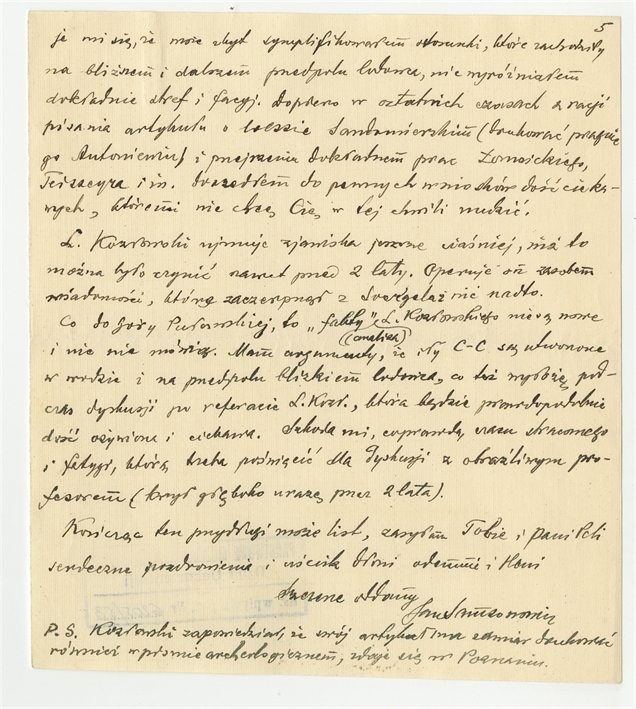 5
je mi się, że może zbyt symplifikowałem stosunki, które zachodziły
na bliższem i dalszem przedpolu lodowca, nie wyróżniałem
dokładnie stref i facyj. Dopiero w ostatnich czasach z racji
pisania artykułu o loessie Sandomierskim (drukować pragnie
go Antoniewicz) i przejrzeniu dokładnem prac Łomnickiego,
Teisseyra i in. doszedłem do pewnych wniosków dość cieka-
wych, któremi nie chcę Cię w tej chwili nudzić.
L. Kozłowski ujmuje zjawiska jeszcze ciaśniej, niż to
można było czynić nawet przed 2 laty. Operuje on zasobem
wiadomości, którą zaczerpnął z i nic nadto.
Co do Góry Puławskiej, to „fakty" L. Kozłowskiego nie są nowe
(analiza)
i nic nie mówią. Mam argumenty, że iły C-C są utworzone
w wodzie i na przedpolu blizkiem lodowca, co też wyłożę pod-
czas dyskusji po referacie L. Kozł., która będzie prawdopodobnie
dość ożywiona i ciekawa. Szkoda mi, coprawda, czasu straconego
i fatygi, którą trzeba poświęcić dla dyskusji z obraźliwym pro-
fesorem (krył głęboko urazę przez 2 lata).
Kończąc ten przydługi może list, zasyłam Tobie i Pani
serdeczne pozdrowienia i uścisk dłoni odemnie i Heni
Szczerze oddany
Jan Samsonowicz
P.S. Kozłowski zapowiedział, że swój artykuł ma zamiar drukować
również w piśmie archeologicznem, zdaje się w Poznaniu.